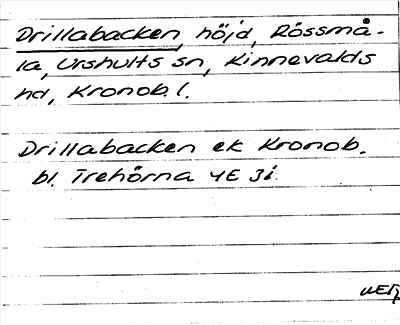 Drillabacken, höjd, Rössmå-
la, Urshults sn, Kinnevalds
hd, Kronob. l.
Drillabacken ek Kronob.
bl. Trehörna 4E 3i